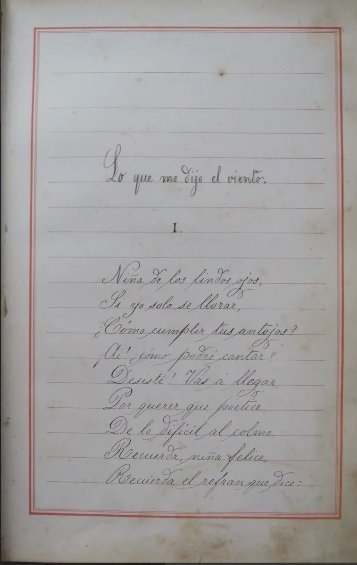 Lo que me dijo el viento.
I.
Niña de los lindos ojos,
Si yo solo se llorar,
¿Cómo cumplir tus antojos?
¡Ai! ¿cómo podré cantar?
Desisté! Vas á llegar
Por querer que
De lo difícil al colmo
Recuerda, niña felice,
Recuerda el refran que dice: